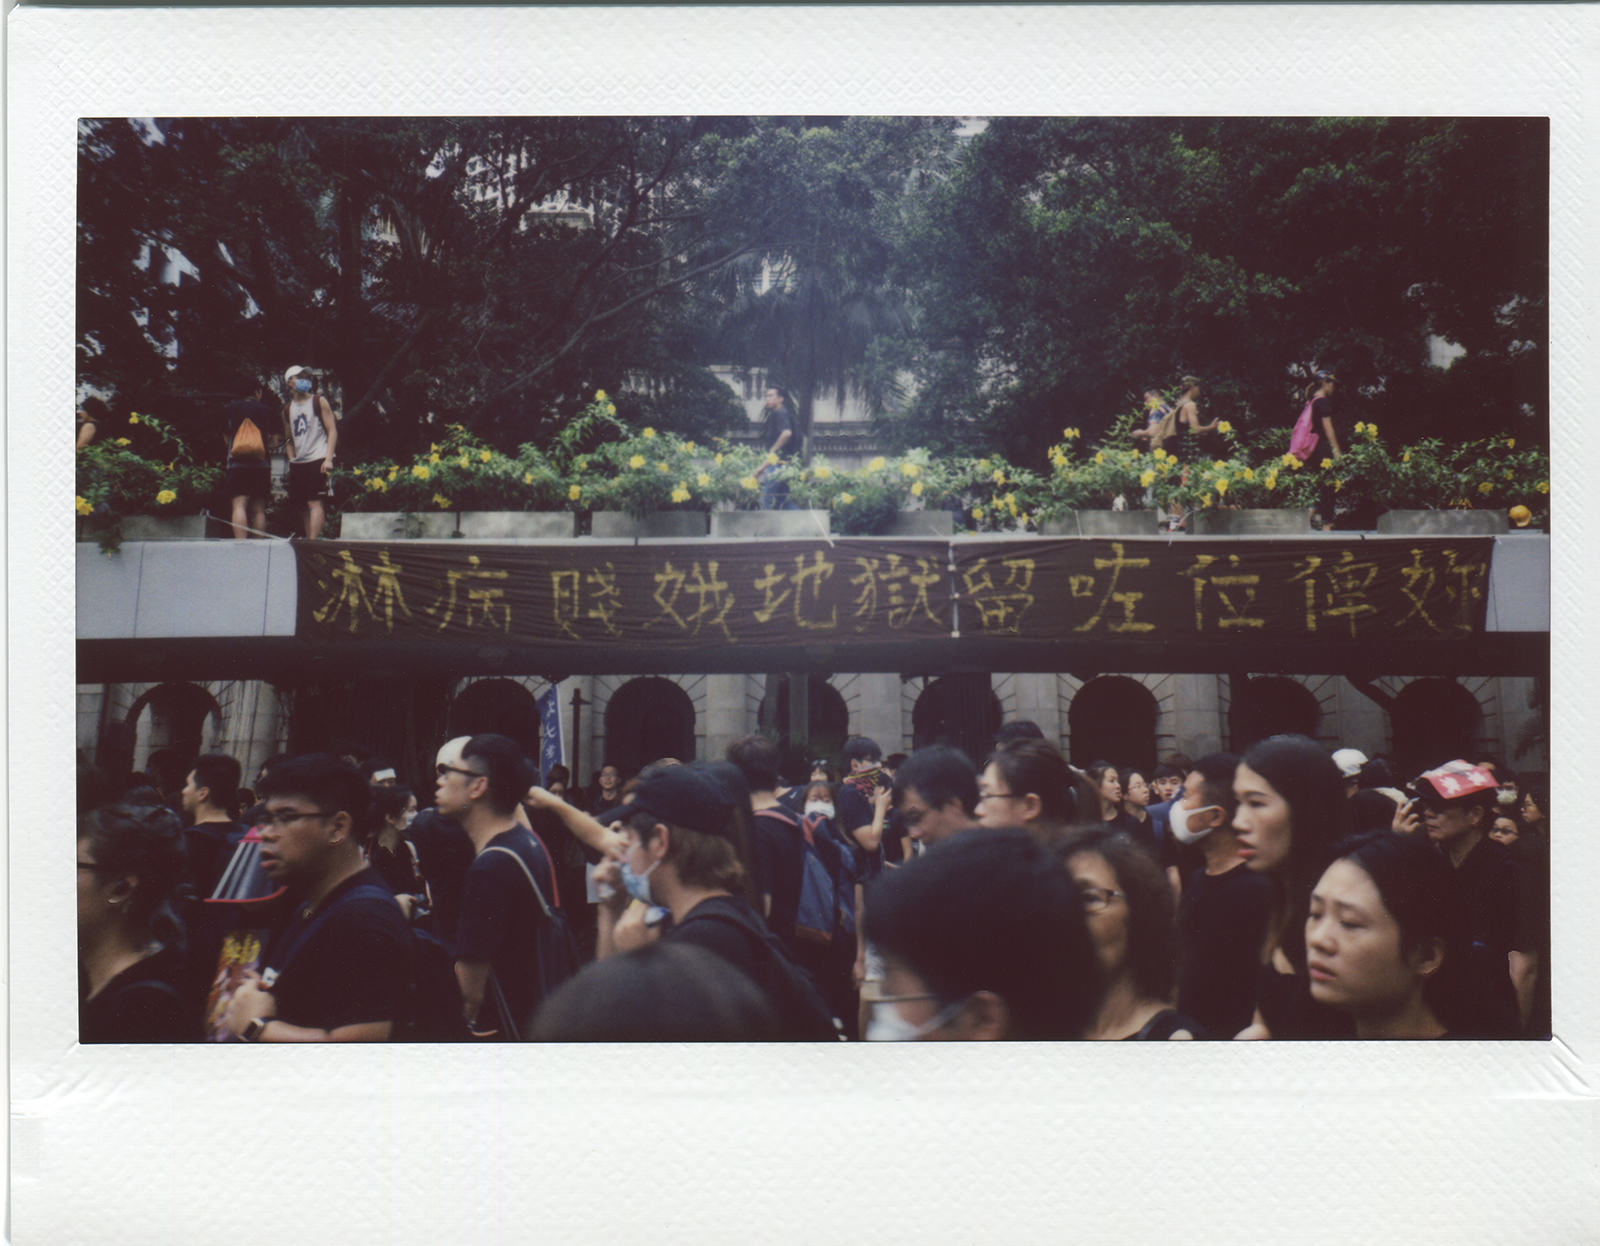 淋病賤娥地獄留咗位俾妳
A